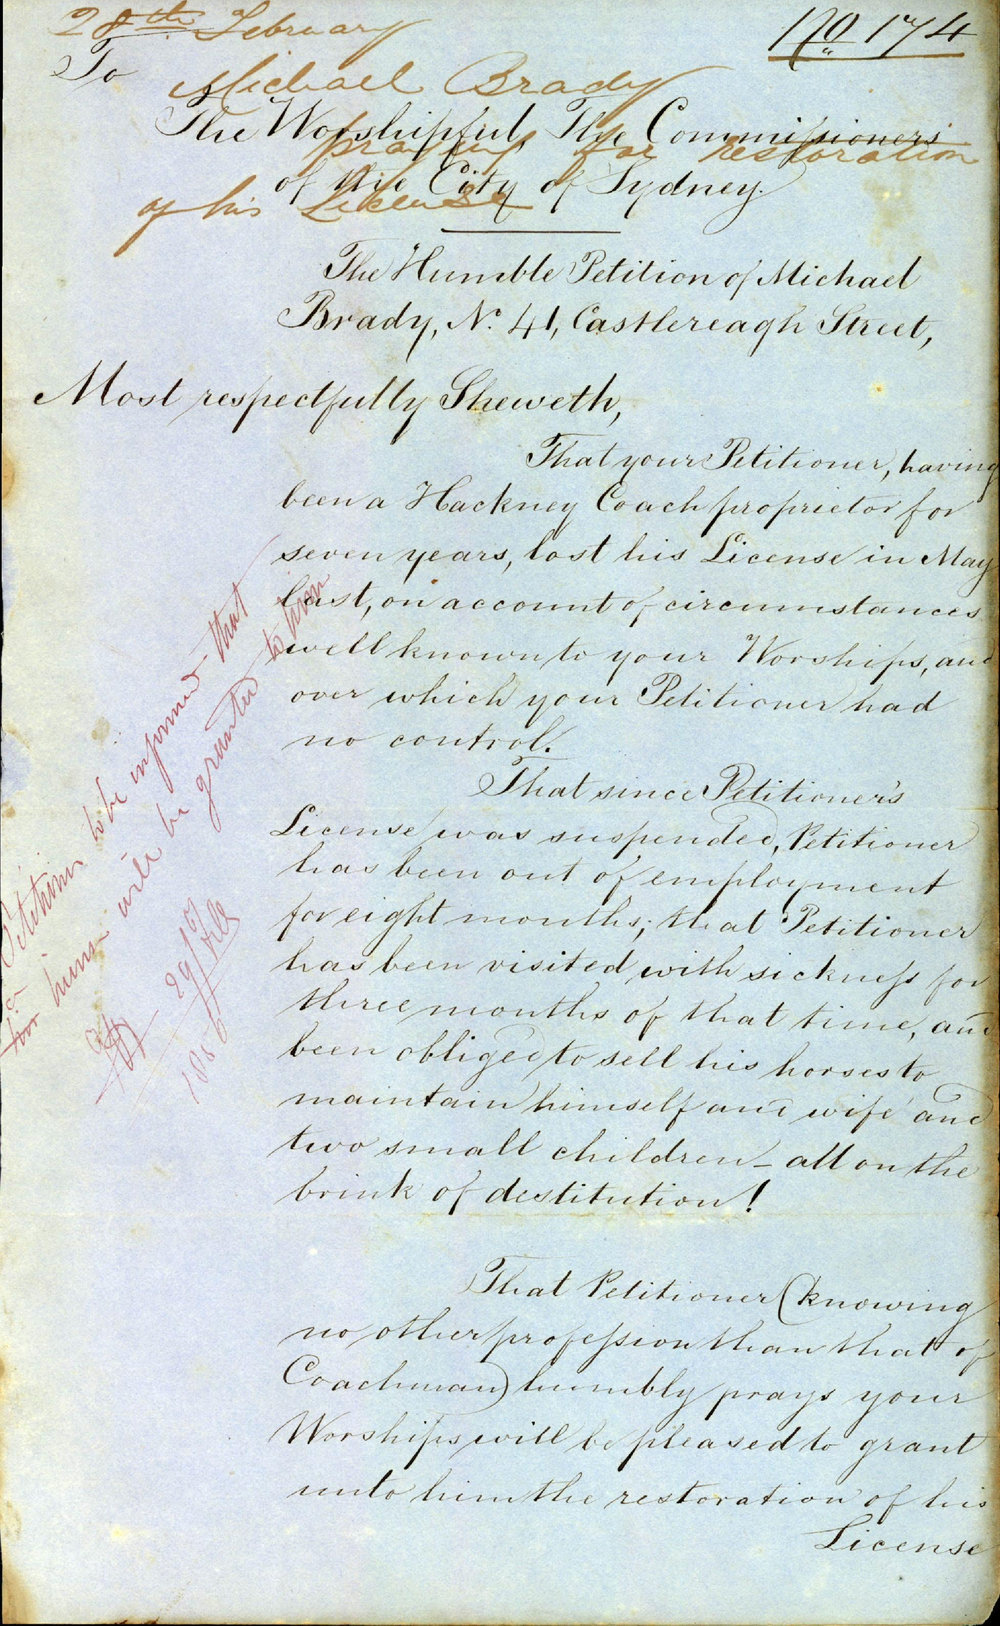 28th February
No 174
To
Michael Brady
The Worshipful The Commissioners
praying for restoration
of the City of Sydney.
of his License
The Humble Petition of Michael
Brady, No. 41, Castlereagh Street,
Most respectfully Sheweth,
That your Petitioner, having
been a Hackney Coach proprietor for
seven years, lost his License in May
last, on account of circumstances
well known to your Worships, and
over which your Petitioner had
no control.
That since Petitioner's
License was suspended, Petitioner
has been out of employment
for eight months; that Petitioner
has been visited with sickness for
three months of that time, and
been obliged to sell his horses to
maintain himself and wife and
two small children - all on the
brink of destitution!
That Petitioner (knowing
no other profession than that of
Coachman) humbly prays your
Worships will be pleased to grant
unto him the restoration of his
License
Petitioner to be informed that
license will be granted to him
29/Feb
1856